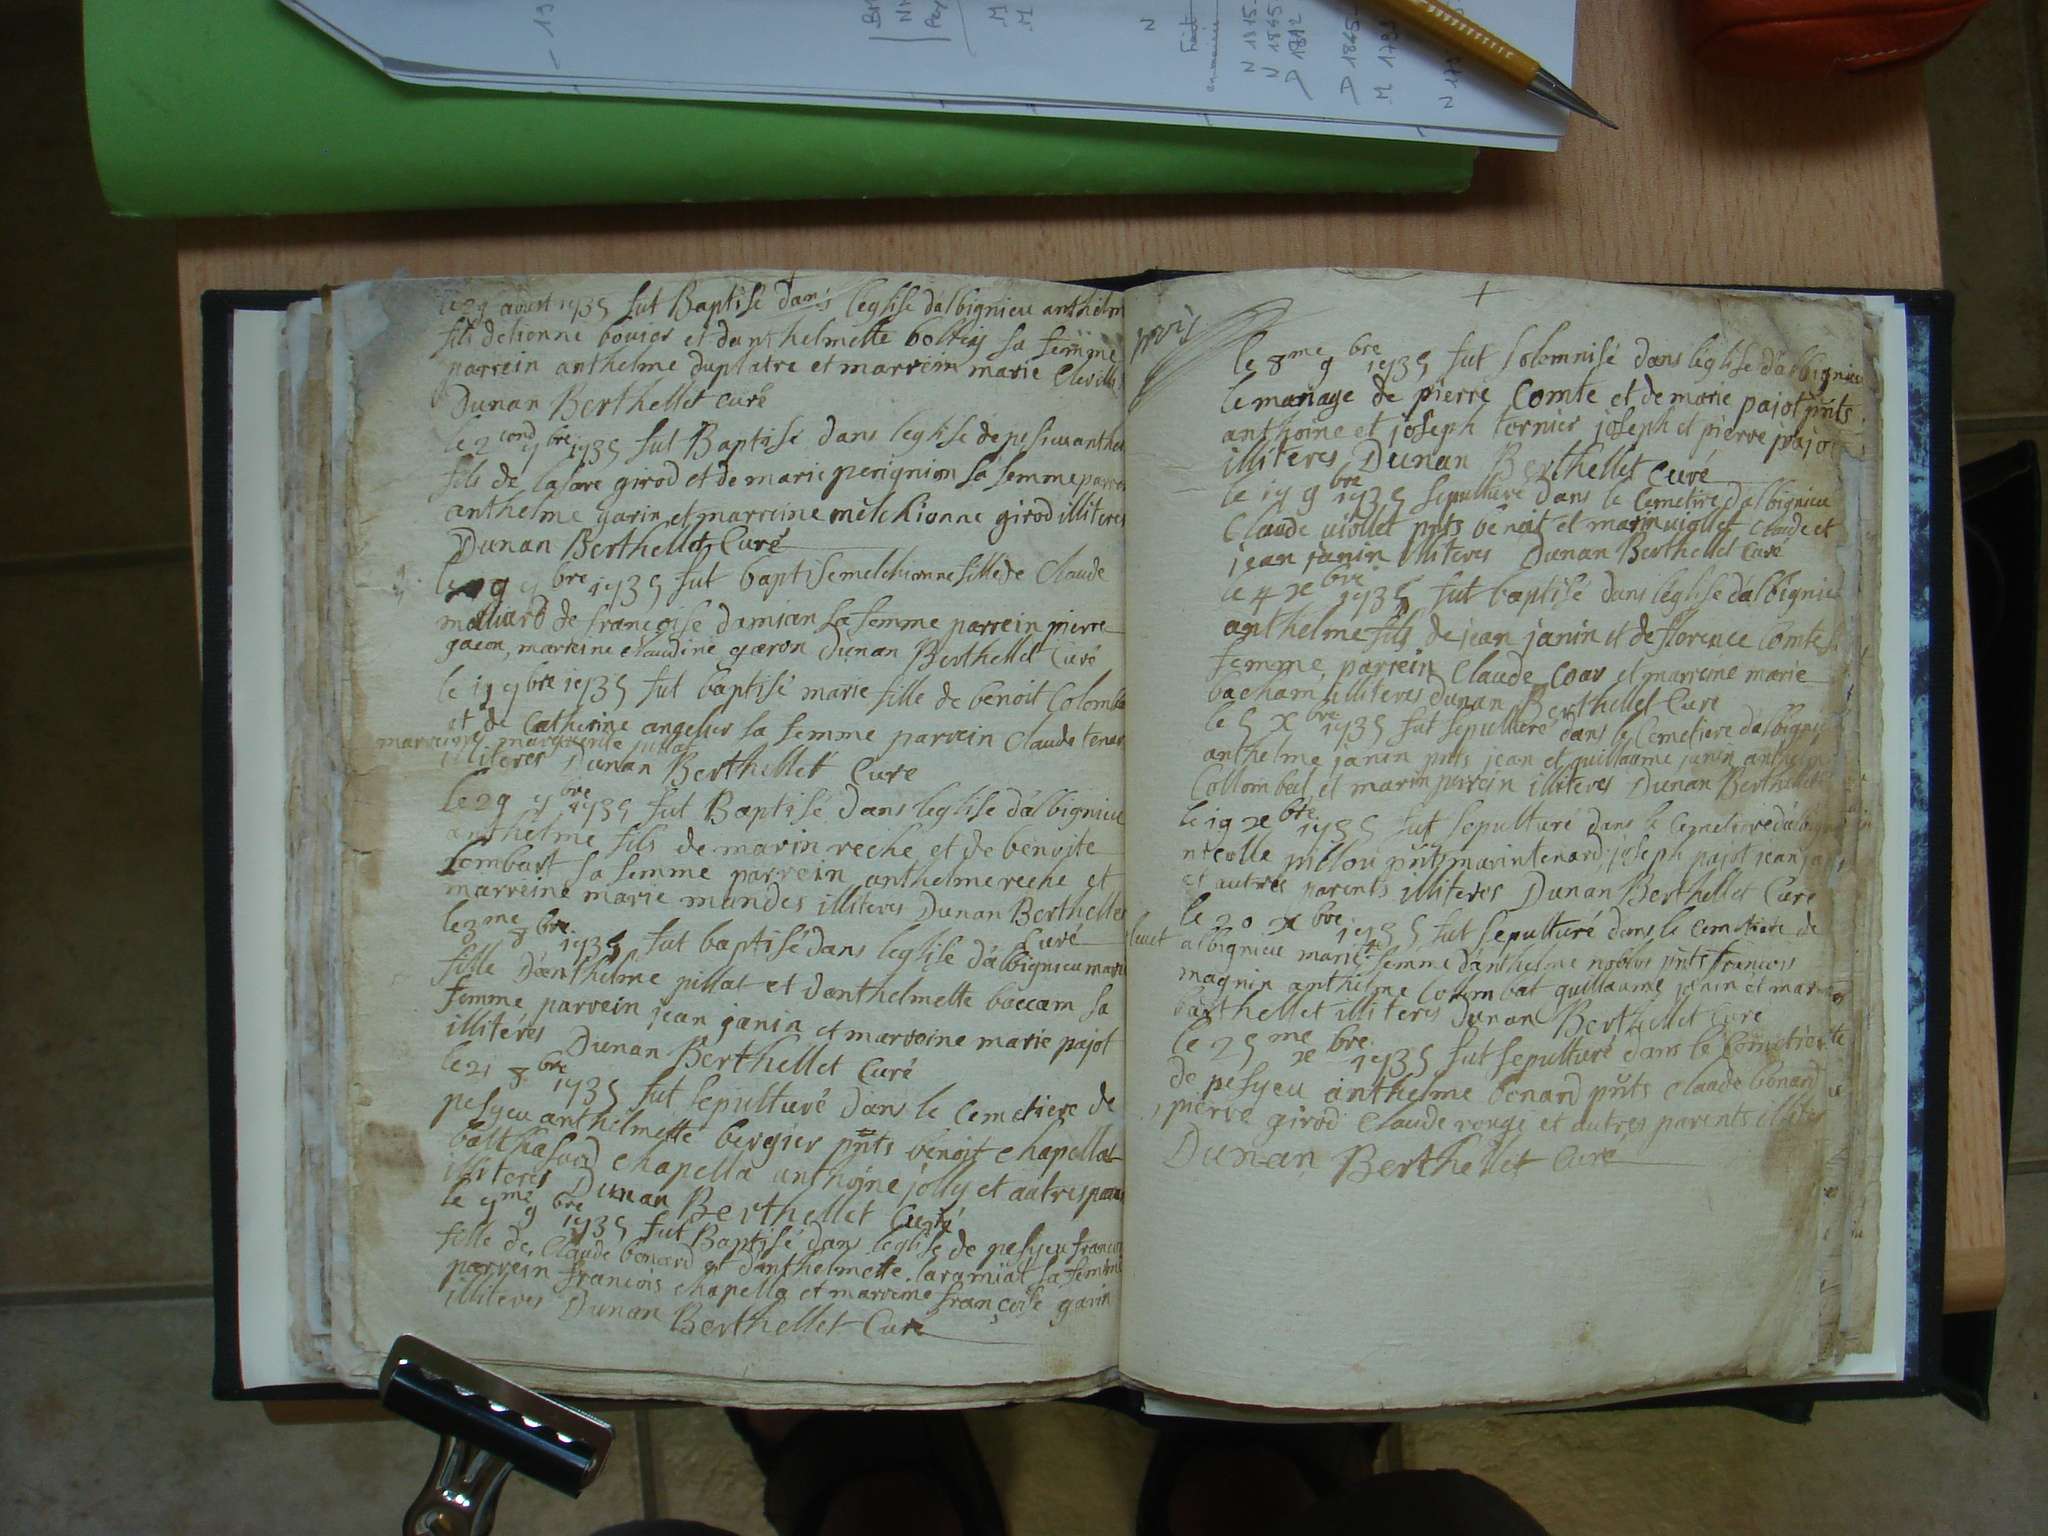 N 1815
N 1845
D 1812
D 1845
M 178
le 29 aoust 1735 fut Baptisé dans leglise d'albignieu anthelm
fils detienne bouier et danthelmette sa femme
parrein anthelme duplatre et marrein marie
Dunan Berthellet curé
le 2cond 7bre 1735 fut Baptisé dans leglise de pesieu anthel
fils de lasare girod et de marie perignion sa femme parre
anthelme garin et marreine melchionne girod illiteres
Dunan Berthellet Curé
le 9 7bre 1735 fut baptise melchionne fille de Claude
de françoise damian sa femme parrein pierre
marreine claudine garon Dunan Berthellet Curé
le 17 7bre 1735 fut baptisé marie fille de benoit Colomba
et de Catherine angelier sa femme parrein Claude tenar
marreine marguerite pillat
illiteres Dunan Berthellet Curé
le 29 7bre 1735 fut Baptisé dans leglise d'albignieu
anthelme fils de marin reche et de benoite
Lombart sa femme parrein anthelme reche et
marreine marie mandes illiteres Dunan Berthellet
Curé
le 3me 8bre 1735 fut baptisé dans leglise d'albignieu marie
fille D'anthelme pillat et d'anthelmette baccam sa
femme parrein jean janin et marreine marie pajot
illitéres Dunan Berthellet Curé
le 21 8bre 1735 fut sepulturé dans le cemetiere de
pesyeu anthelmette bergier pnts benoit chapellat
balthasard chapella anthoine jolly et autres paran
illiteres Dunan Berthellet Curé
le 7me 9bre 1735 fut Baptisé dans leglise de pesyeu françoi
fille de Claude bonard et d'anthelmette laramiat sa femme
parrein francois chapella et marreine françoise garin
illiteres Dunan Berthellet Curé
le 8me 9bre 1735 fut solomnisé dans leglise d'albignieu
le mariage de pierre Comte et de marie pajot pnts
anthoine et joseph tornier joseph et pierre pajo
illiteres Dunan Berthellet Curé
le 17 9bre 1735 sepulture dans le Cemetire d'albignieu
Claude uiollet pnts benoit et marin uiollet Claude et
jean janin illiteres Dunan Berthellet Curé
le 4 xbre 1735 fut baptisé dans leglise d'albignieu
anthelme fils de jean janin et de florence Comte s
femme, parrein Claude Coar et marreine marie
bacham illiteres Dunan Berthellet Curé
le 5 xbre 1735 fut sepulturé dans le Cemetiere d'albignieu
anthelme janin pnts jean et guillaume janin anthelm
Collombat et marin perrein illiteres Dunan Berthellet
le 19 xbre 1735 fut sepulturé dans le Cemetiere d'albign
pillou pnts marin tenard joseph pajot jean
et autres parents illiteres Dunan Berthellet Curé
le 20 xbre 1735 fut sepulturé dans le Cemetiere de
albignieu marie femme d'anthelme pnts françois
magnin anthelme Colombat guillaume janin et mar
barthellet illiteres Dunan Berthellet Curé
le 25me xbre 1735 fut sepulturé dans le Cemetiere
de pesyeu anthelme bonard pnts Claude bonard
pierre girod Claude rouge et autres parents illiter
Dunan Berthellet Curé